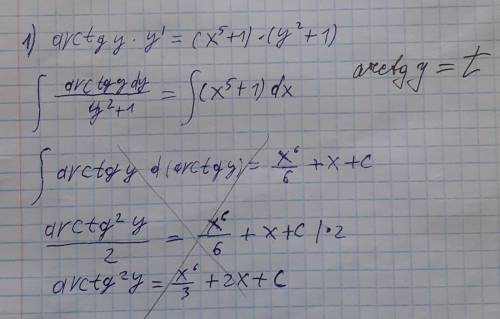 1) arctg y · y' = (x⁵+1)·(y²+1)
∫ arctg y dy / y²+1 = ∫(x⁵+1) dx
arctg y = t
∫ arctg y d(arctg y) = x⁶/6 + x + C
arctg² y / 2 = x⁶/6 + x + C | · 2
arctg² y = x⁶/3 + 2x + C